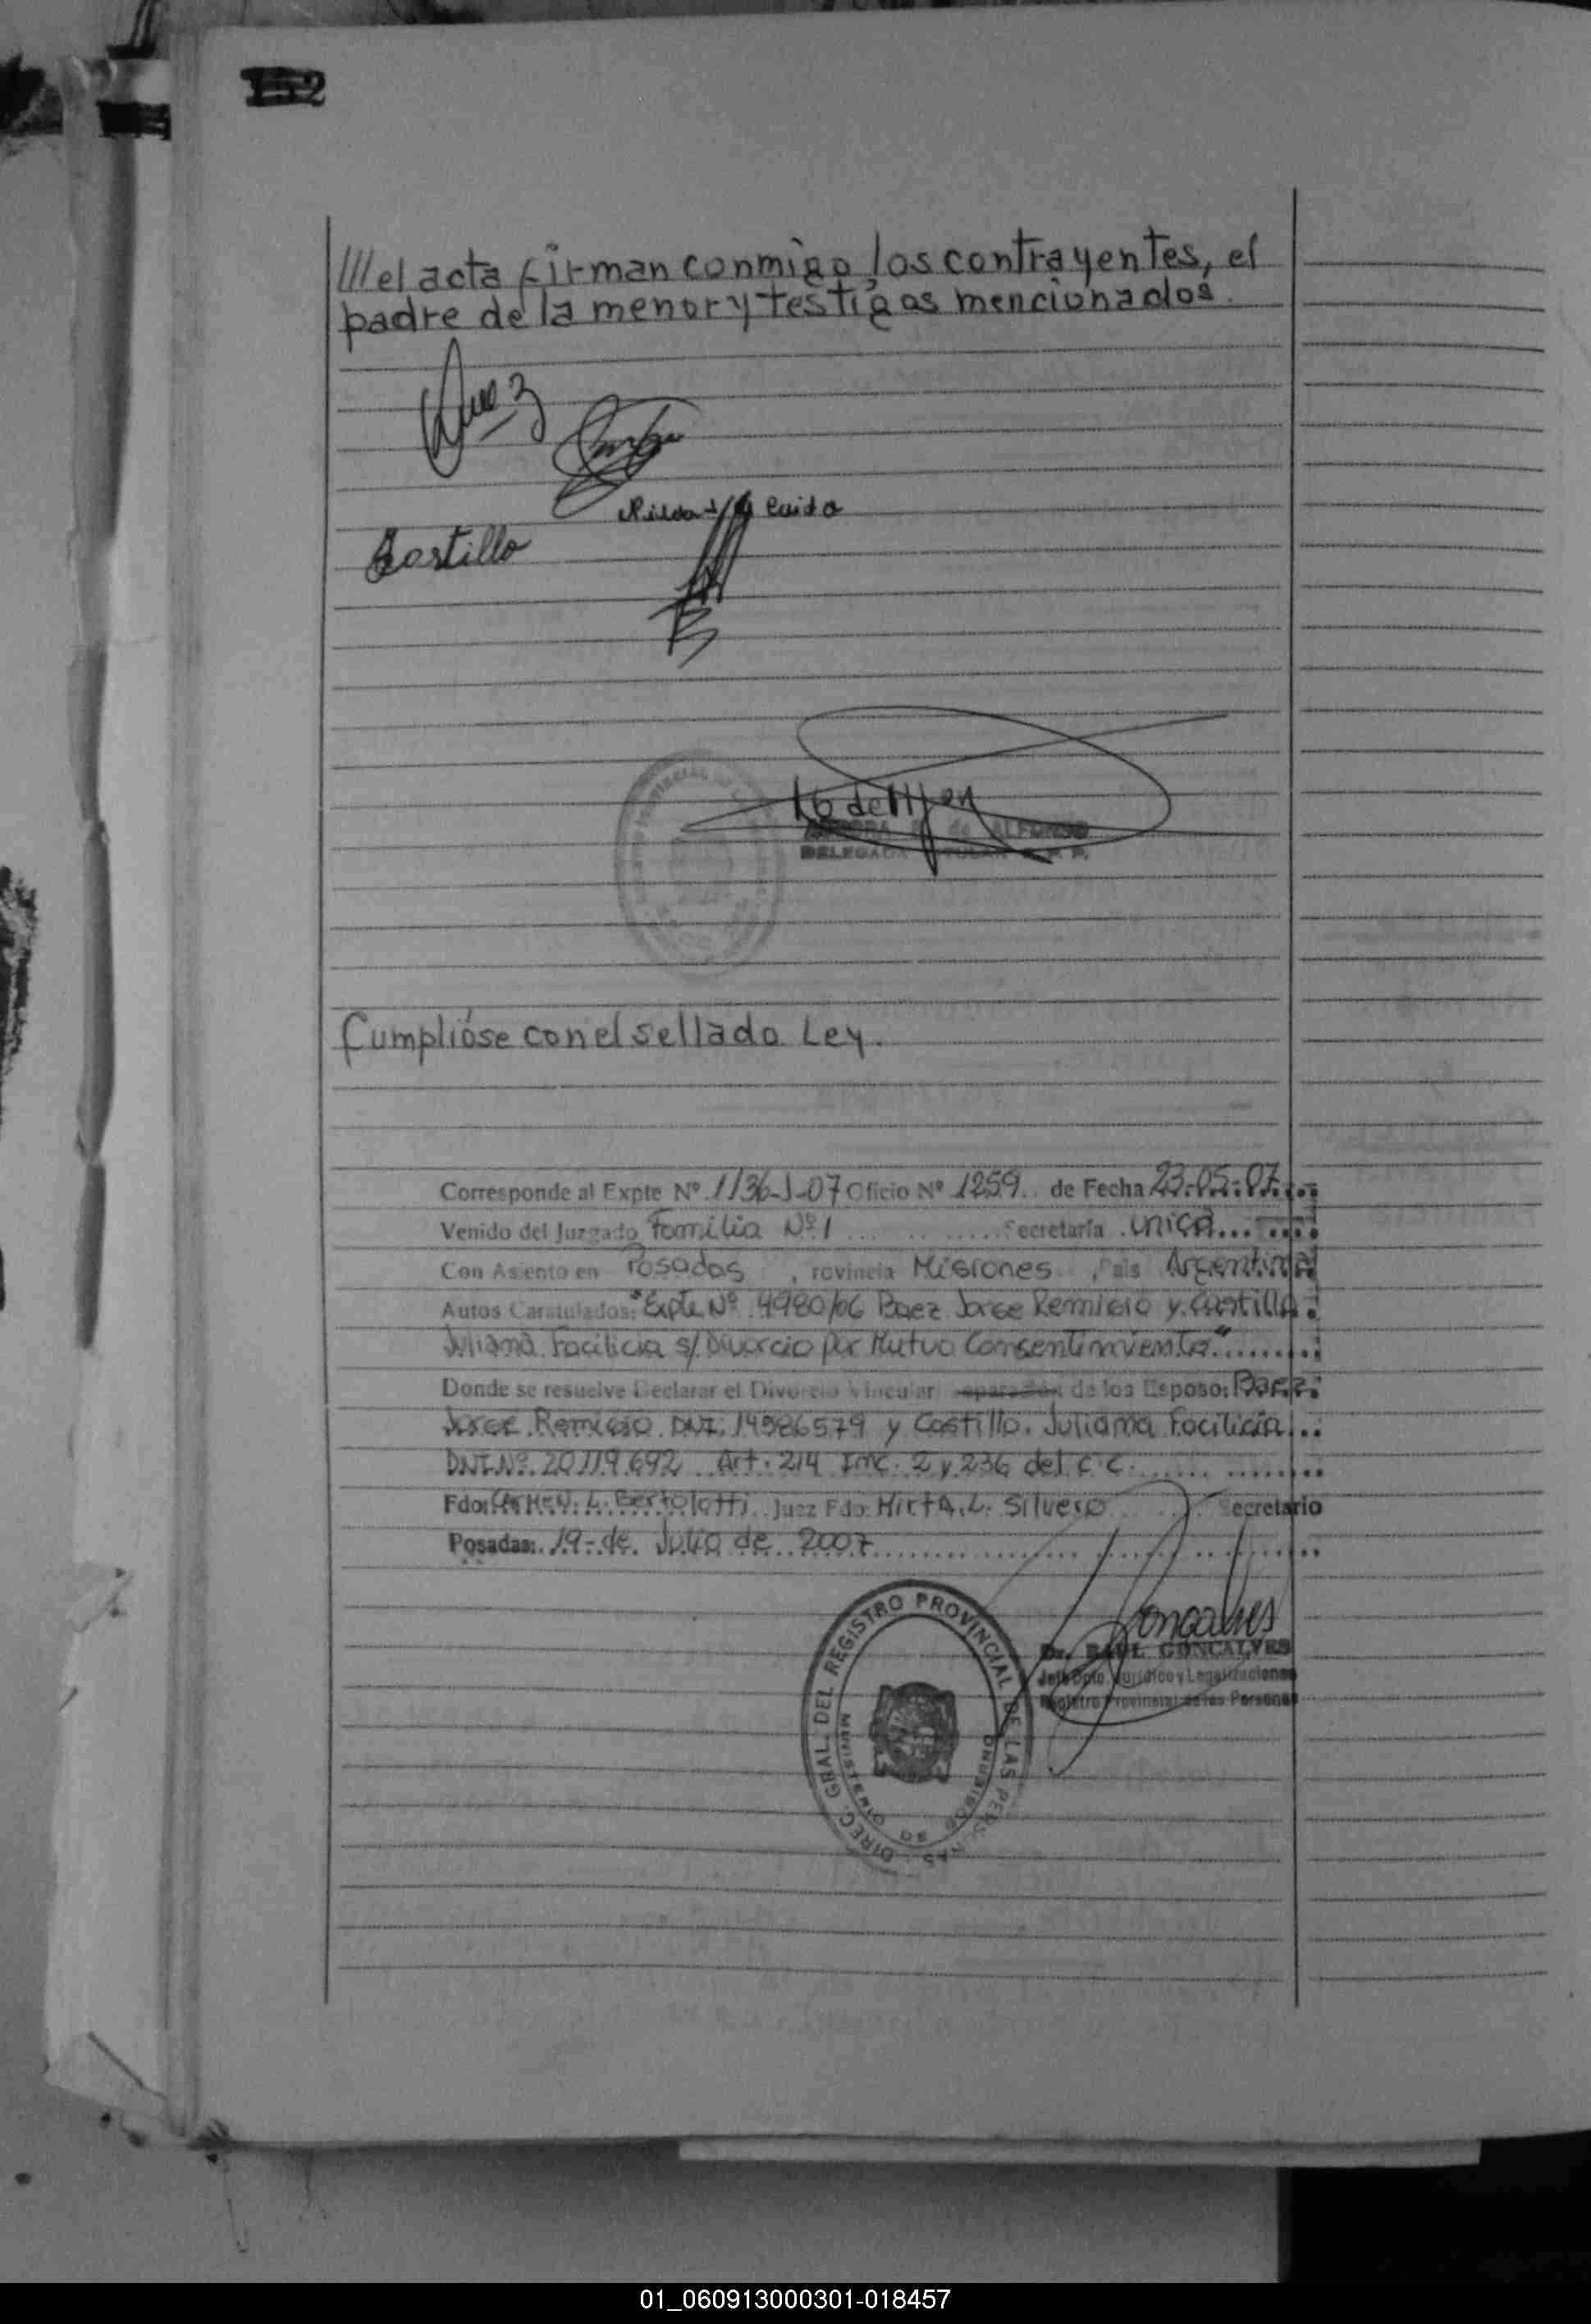 152
///el acta firman conmigo los contrayentes, el
padre de la menor y testigos mencionados.
Castillo
DELEGADA
Cumplióse con el sellado Ley.
Corresponde al Expte Nº 1136-J-07 Oficio Nº 1259 de Fecha 23-05-07
Venido del Juzgado Familia Nº 1 Secretaría única
Con Asiento en Posadas, rovincia Misiones, País Argentina
Autos Caratulados: "Expte Nº 4980/06 Baez Jorge Remigio y Castillo
Juliana Facilicia s/ Divorcio por Mutuo Consentimiento"
Donde se resuelve Declarar el Divorcio Vincular separación de los Esposo: Baez
Jorge Remigio DNI: 14986579 y Castillo Juliana Facilicia
DNI Nº 20.119.692 Art. 214 Inc. 2 y 236 del C.C.
Fdo: Carmen L. Bertolotti Juez Fdo: Mirta L. Silvero Secretario
Posadas: 19 de Julio de 2007
Goncalves
Dr. RAUL GONCALVES
Jefe Dpto. Jurídico y Legalizaciones
Registro Provincial de las Personas
DIREC. GRAL. DEL REGISTRO PROVINCIAL DE LAS PERSONAS
MINISTERIO DE GOBIERNO
01_060913000301-018457